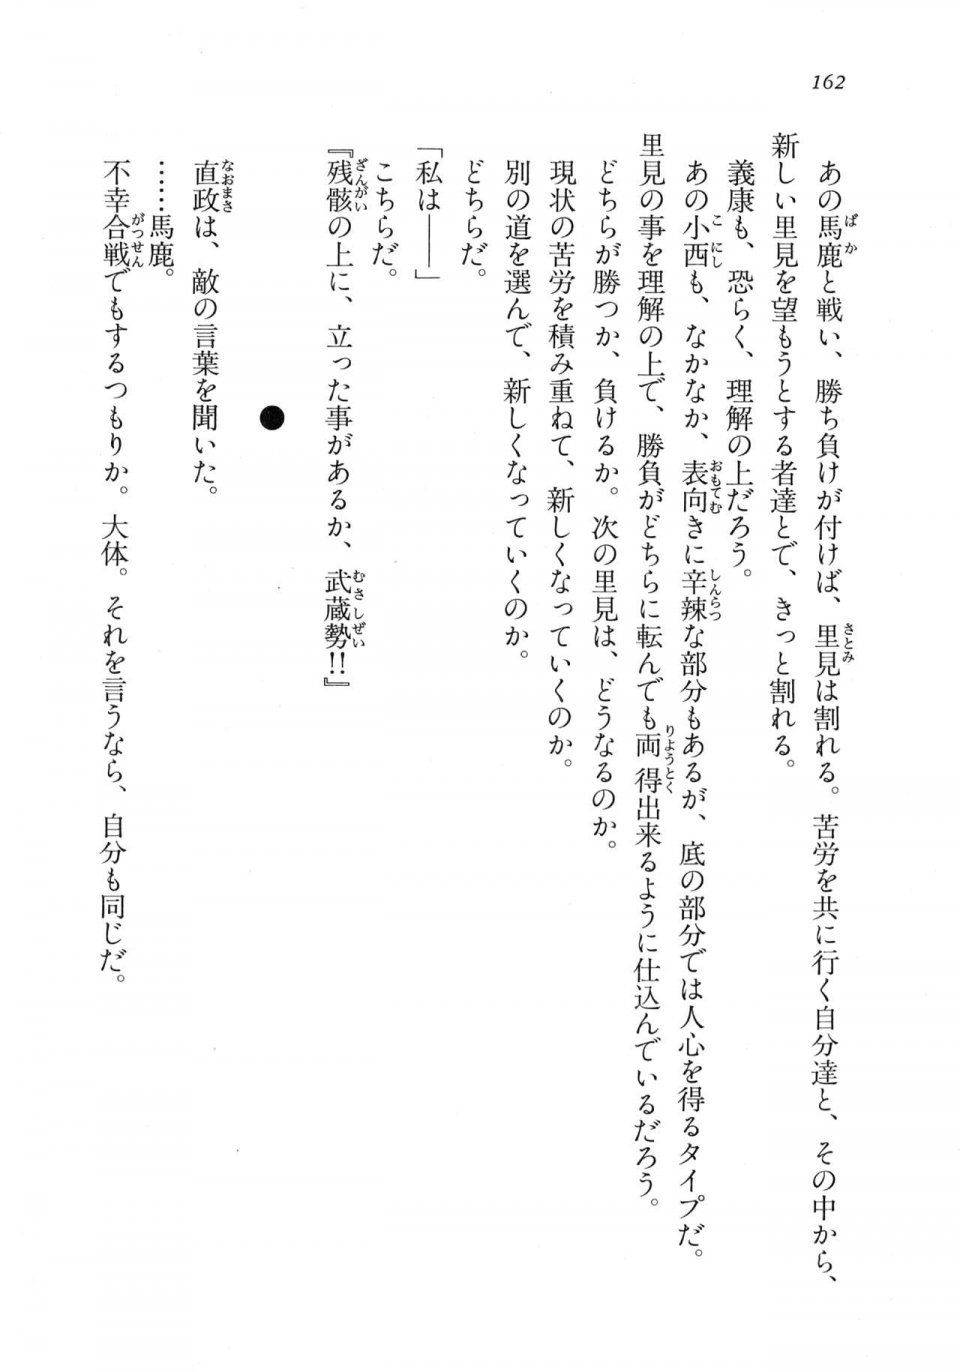 162
あの馬鹿と戦い、勝ち負けが付けば、里見は割れる。苦労を共に行く自分達と、その中から、
新しい里見を望もうとする者達とで、きっと割れる。
義康も、恐らく、理解の上だろう。
あの小西も、なかなか、表向きに辛辣な部分もあるが、底の部分では人心を得るタイプだ。
里見の事を理解の上で、勝負がどちらに転んでも両得出来るように仕込んでいるだろう。
どちらが勝つか、負けるか。次の里見は、どうなるのか。
現状の苦労を積み重ねて、新しくなっていくのか。
別の道を選んで、新しくなっていくのか。
どちらだ。
「私は――」
こちらだ。
『残骸の上に、立った事があるか、武蔵勢!!』
●
直政は、敵の言葉を聞いた。
……馬鹿。
不幸合戦でもするつもりか。大体。それを言うなら、自分も同じだ。